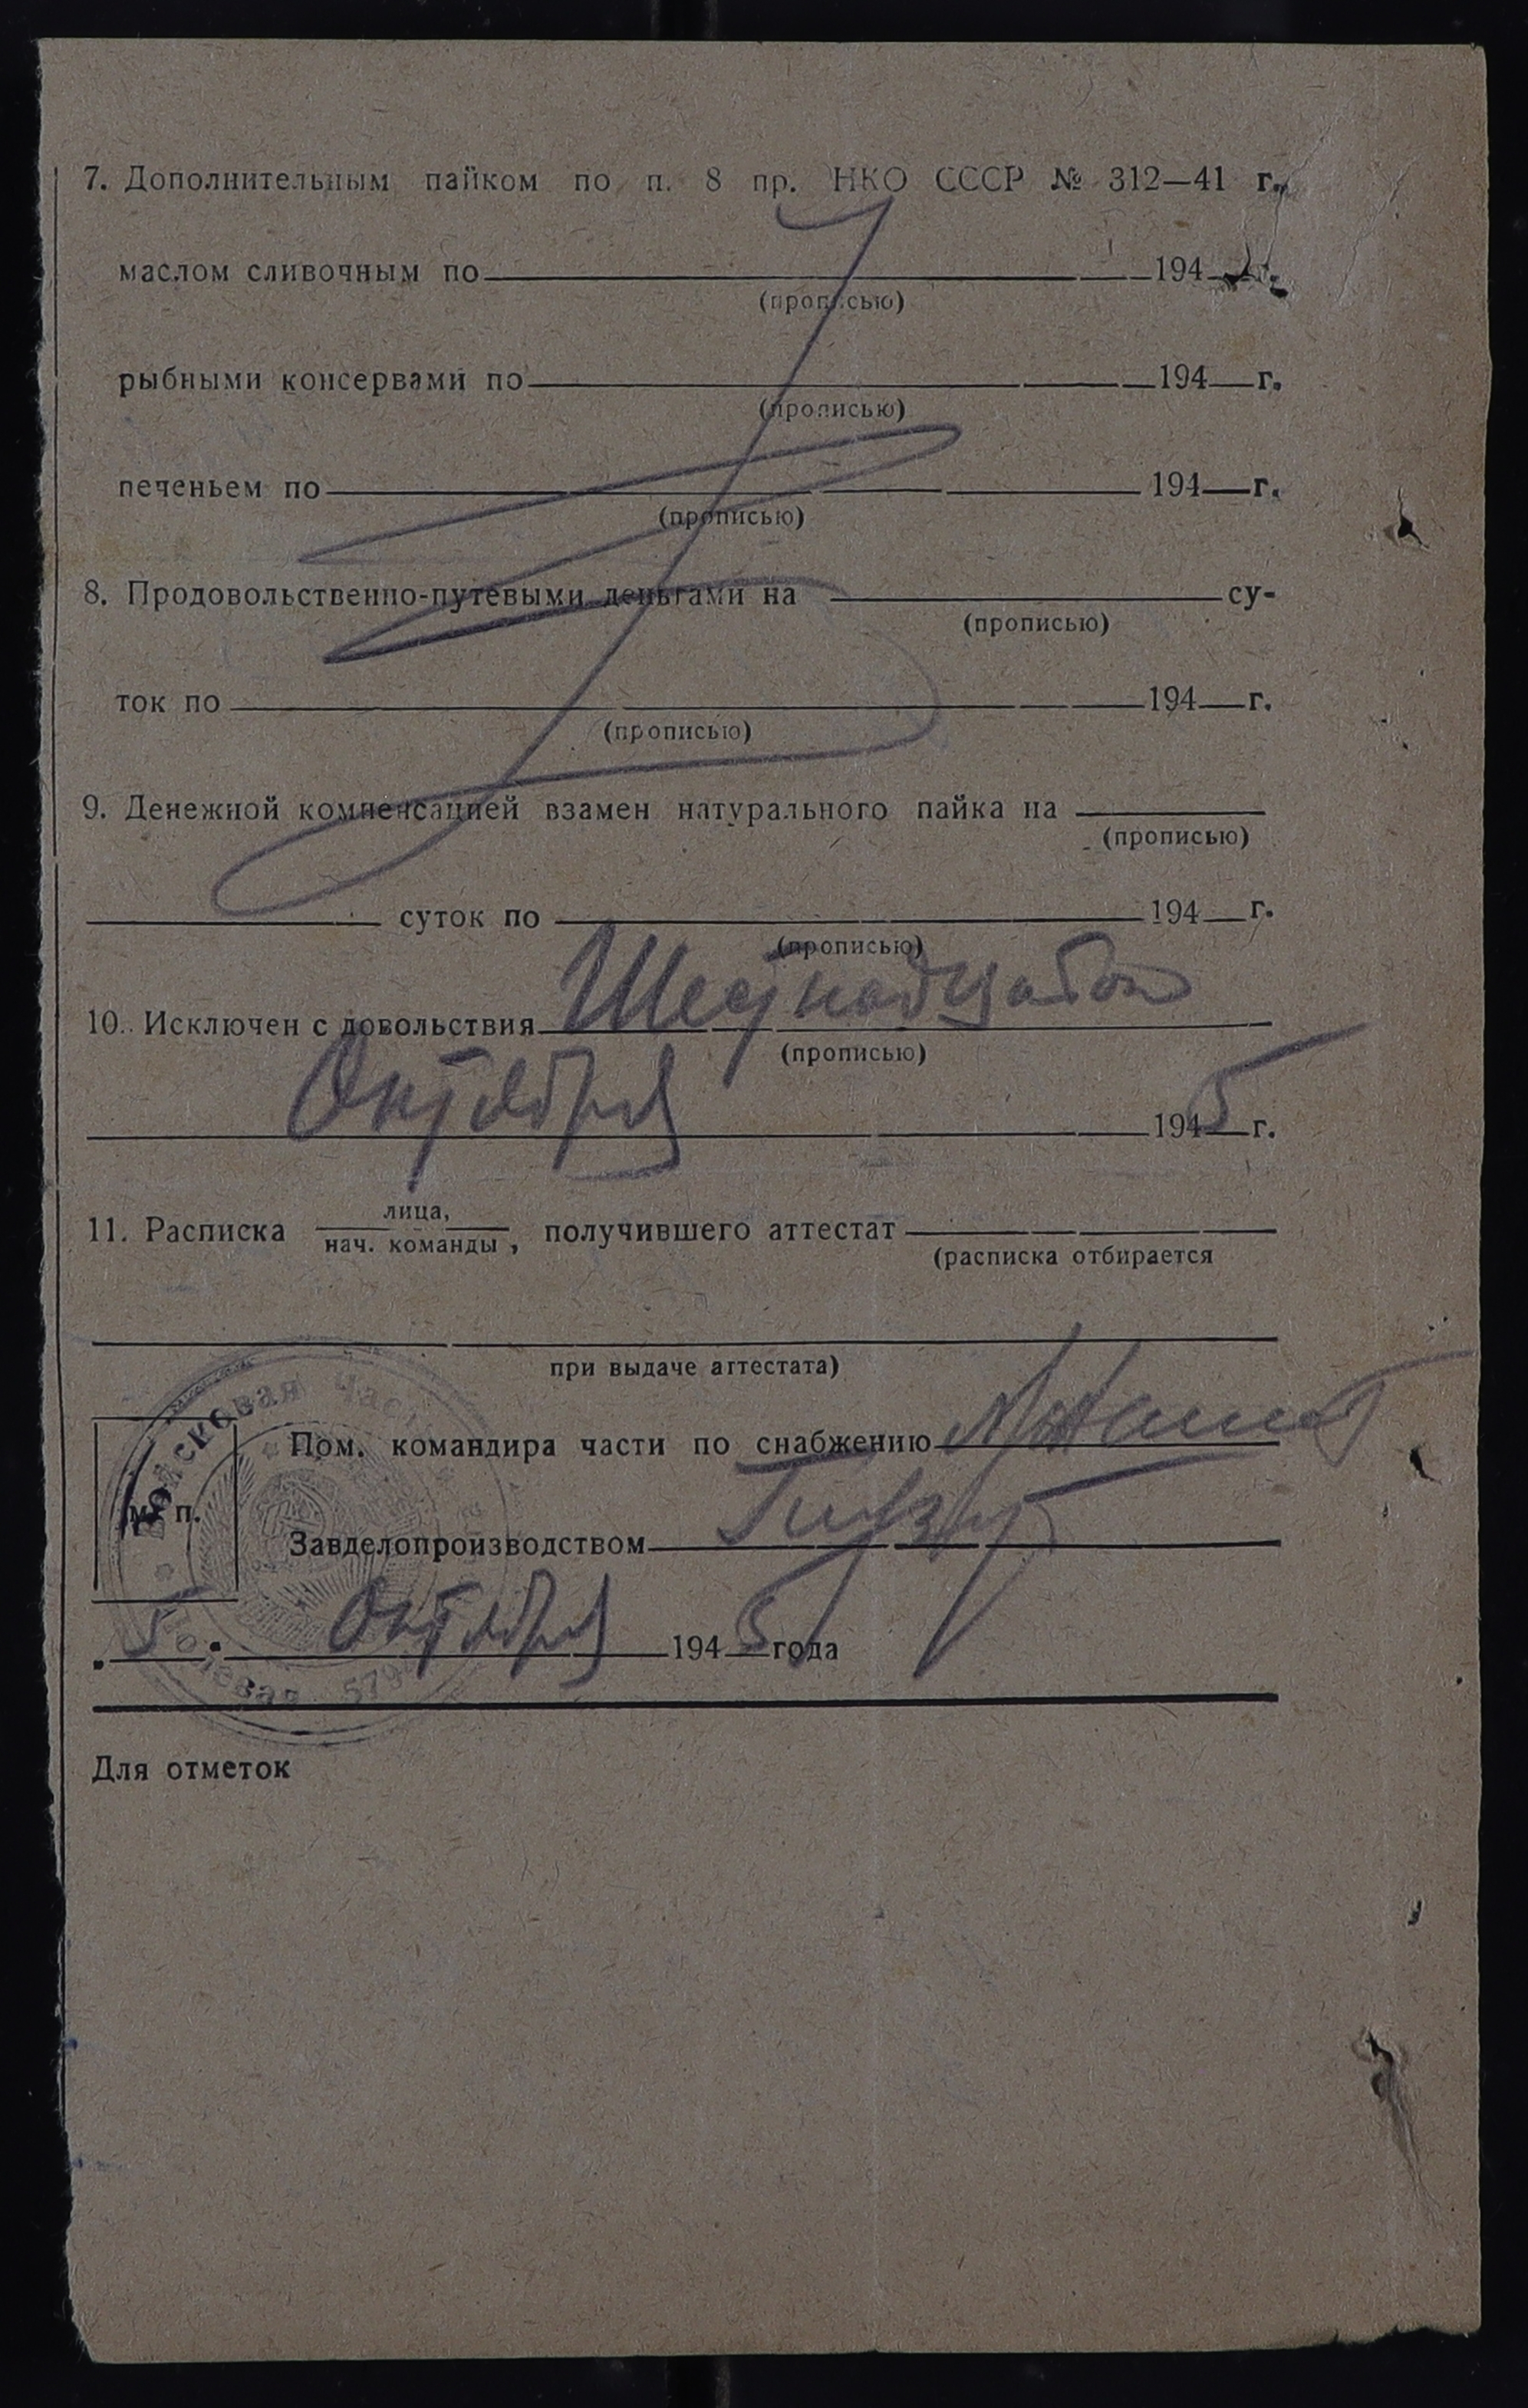 7. Дополнительным пайком по п. 8 пр. НКО СССР № 312—41 г.
маслом сливочным по 194 г.
(прописью)
рыбными консервами по 194 г.
(прописью)
печеньем по 194 г.
(прописью)
8. Продовольственно-путевыми деньгами на су-
(прописью)
ток по 194 г.
(прописью)
9. Денежной компенсацией взамен натурального пайка на
(прописью)
суток по 194 г.
(прописью)
10. Исключен с довольствия Шестнадцатого
(прописью)
Октября 1945 г.
11. Расписка лица, нач. команды, получившего аттестат
(расписка отбирается
при выдаче аттестата)
Войсковая часть
Пом. командира части по снабжению
М. П.
Завделопроизводством
5 Октября 1945 года
Полевая
Для отметок